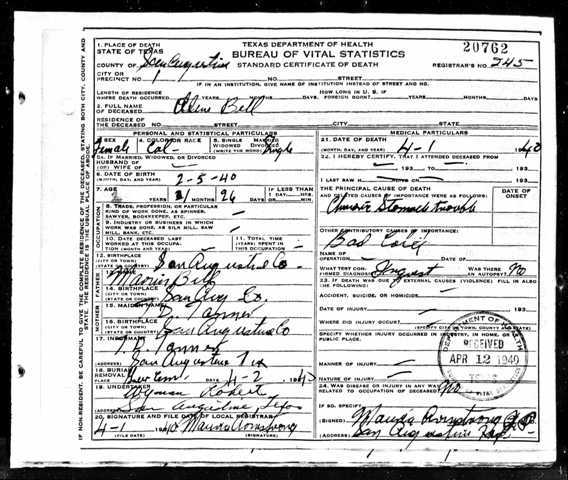 TEXAS DEPARTMENT OF HEALTH
BUREAU OF VITAL STATISTICS
STANDARD CERTIFICATE OF DEATH
20762
REGISTRAR'S NO. 245
1. PLACE OF DEATH
STATE OF TEXAS
COUNTY OF San Augustine
CITY OR
PRECINCT NO. 1 NO. STREET
IF IN AN INSTITUTION, GIVE NAME OF INSTITUTION INSTEAD OF STREET AND NO.
LENGTH OF RESIDENCE
WHERE DEATH OCCURRED YEARS MONTHS DAYS
HOW LONG IN U. S. IF
FOREIGN BORN? YEARS MONTHS DAYS
2. FULL NAME OF
DECEASED Bell
RESIDENCE OF
THE DECEASED NO. STREET CITY STATE
PERSONAL AND STATISTICAL PARTICULARS
3. SEX Female
4. COLOR OR RACE Col
5. SINGLE
MARRIED
WIDOWED DIVORCED
(WRITE THE WORD) Single
5A. IF MARRIED, WIDOWED, OR DIVORCED
HUSBAND OF
(OR) WIFE OF —
6. DATE OF BIRTH
(MONTH, DAY, AND YEAR) 2-5-40
7. AGE YEARS MONTHS DAYS 26
IF LESS THAN
1 DAY
HOURS MIN.
8. TRADE, PROFESSION, OR PARTICULAR
KIND OF WORK DONE, AS SPINNER,
SAWYER, BOOKKEEPER, ETC. —
9. INDUSTRY OR BUSINESS IN WHICH
WORK WAS DONE, AS SILK MILL, SAW
MILL, BANK, ETC. —
10. DATE DECEASED LAST
WORKED AT THIS OCCUPATION
(MONTH AND YEAR) —
11. TOTAL TIME
(YEARS) SPENT IN
THIS OCCUPATION —
12. BIRTHPLACE
(CITY OR TOWN)
(STATE OR COUNTRY) San Augustine Co
13. NAME Bell
14. BIRTHPLACE
(CITY OR TOWN)
(STATE OR COUNTRY) San Aug Co.
15. MAIDEN NAME Tanner
16. BIRTHPLACE
(CITY OR TOWN)
(STATE OR COUNTRY) San Augustine Co
17. INFORMANT Tanner
(ADDRESS) San Augustine Tex
18. BURIAL
REMOVAL
PLACE
DATE 4-2 1940
19. UNDERTAKER Wyman
(ADDRESS) San Augustine Texas
20. SIGNATURE AND FILE DATE OF LOCAL REGISTRAR
4-1 1940 Armstrong
(FILE DATE) (SIGNATURE)
MEDICAL PARTICULARS
21. DATE OF DEATH
(MONTH, DAY, AND YEAR) 4-1 1940
22. I HEREBY CERTIFY, THAT I ATTENDED DECEASED FROM
— 193 TO 193
I LAST SAW H ALIVE ON 193
THE PRINCIPAL CAUSE OF DEATH
AND RELATED CAUSES OF IMPORTANCE WERE AS FOLLOWS:
DATE OF
ONSET
Stomach trouble
OTHER CONTRIBUTORY CAUSES OF IMPORTANCE
Bad Cold
NAME OF
OPERATION —
WHAT TEST CONFIRMED DIAGNOSIS? Inquest
WAS THERE
AN AUTOPSY? No
23. IF DEATH WAS DUE TO EXTERNAL CAUSES (VIOLENCE) FILL IN ALSO
(THE FOLLOWING)
ACCIDENT, SUICIDE, OR HOMICIDE —
DATE OF
INJURY
WHERE DID INJURY OCCUR?
(SPECIFY CITY, TOWN, COUNTY AND STATE)
SPECIFY WHETHER INJURY OCCURRED IN INDUSTRY, HOME, OR
PUBLIC PLACE.
MANNER OF
INJURY —
NATURE OF
INJURY —
24. WAS DISEASE OR INJURY IN ANY WAY
RELATED TO OCCUPATION OF DECEASED? No
IF SO, SPECIFY
(SIGNED) Armstrong
(ADDRESS) San Augustine
DEPARTMENT OF HEALTH
RECEIVED
APR 12 1940
TEXAS